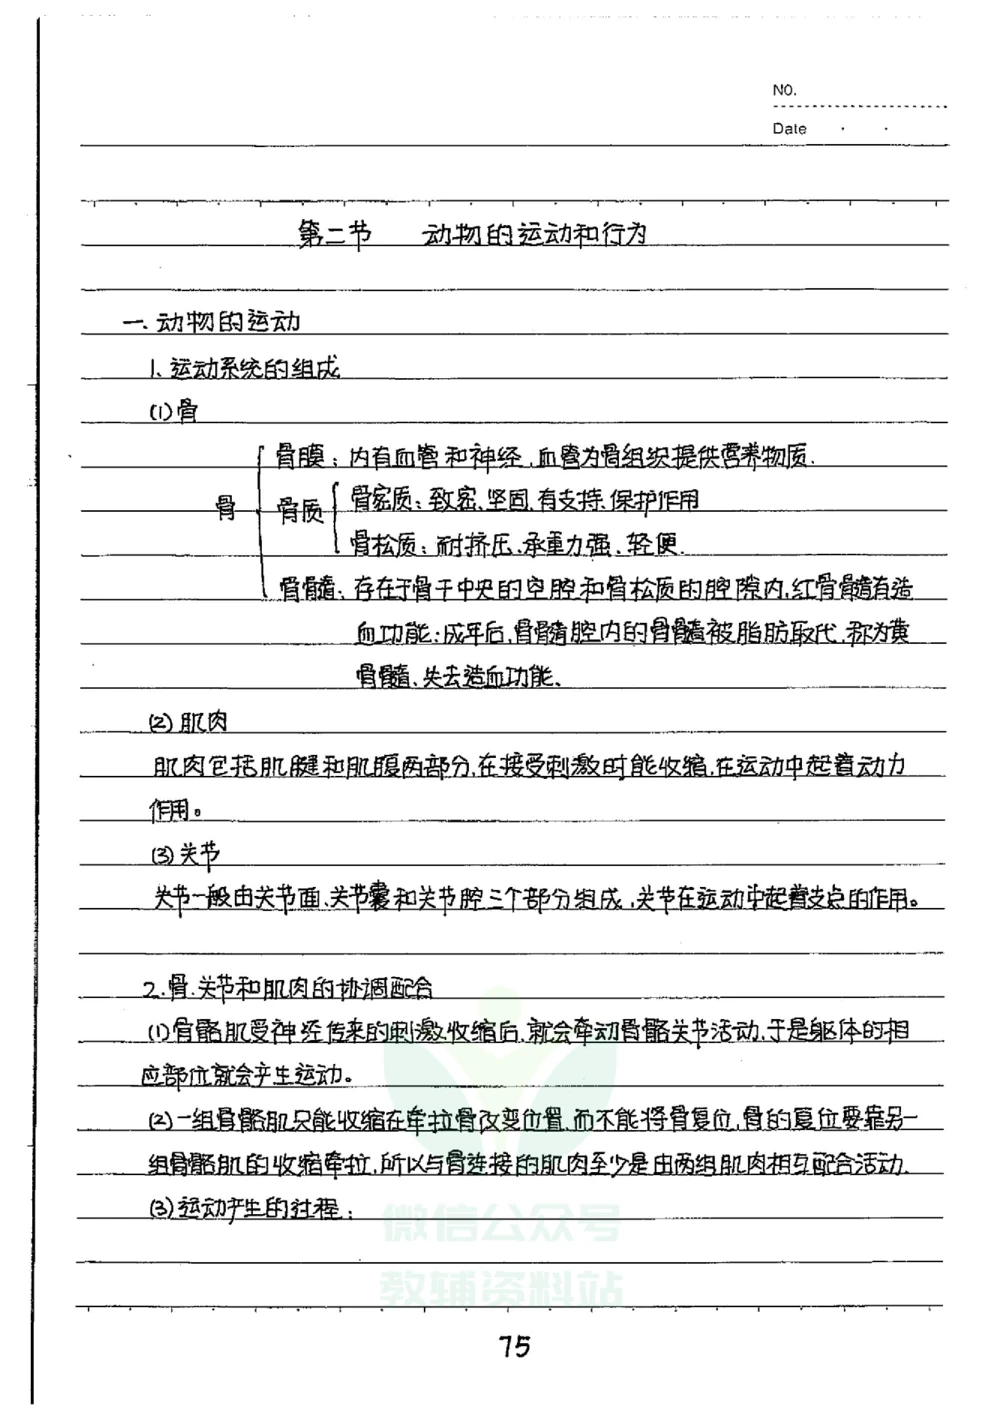 NO.
Date
第二节 动物的运动和行为
一、动物的运动
1、运动系统的组成
(1)骨
骨膜：内有血管和神经，血管为骨组织提供营养物质.
骨密质：致密、坚固，有支持、保护作用
骨 骨质
骨松质：耐挤压、承重力强、轻便.
骨骨髓：存在于骨干中央的空腔和骨松质的腔隙内，红骨骨髓有造
血功能；成年后，骨骨髓腔内的骨骨髓被脂肪取代，称为黄
骨髓、失去造血功能、
(2)肌肉
肌肉包括肌腱和肌腹两部分，在接受刺激时能收缩，在运动中起着动力
作用。
(3)关节
关节一般由关节面、关节囊和关节腔三个部分组成，关节在运动中起着支点的作用。
2.骨、关节和肌肉的协调配合
(1)骨骼肌受神经传来的刺激收缩后，就会牵动骨骼关节活动，于是躯体的相
应部位就会产生运动。
(2)一组骨骼肌只能收缩在牵拉骨改变位置，而不能将骨复位，骨的复位要靠另一
组骨骼肌的收缩牵拉，所以与骨连接的肌肉至少是由两组肌肉相互配合活动.
(3)运动产生的过程：
微信公众号
教辅资料站
75